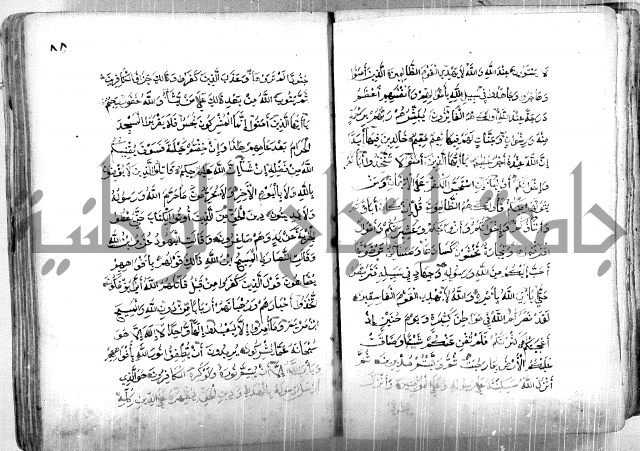 لا يستوون عند الله والله لا يهدي القوم الظالمين الذين آمنوا
وهاجروا وجاهدوا في سبيل الله بأموالهم وأنفسهم أعظم
درجة عند الله وأولئك هم الفائزون يبشرهم ربهم برحمة
منه ورضوان وجنات لهم فيها نعيم مقيم خالدين فيها أبدا
إن الله عنده أجر عظيم يا أيها الذين آمنوا لا تتخذوا آباءكم
وإخوانكم أولياء إن استحبوا الكفر على الإيمان ومن
يتولهم منكم فأولئك هم الظالمون قل إن كان آباؤكم
وأبناؤكم وإخوانكم وأزواجكم وعشيرتكم وأموال
اقترفتموها وتجارة تخشون كسادها ومساكن ترضونها
أحب إليكم من الله ورسوله وجهاد في سبيله فتربصوا
حتى يأتي الله بأمره والله لا يهدي القوم الفاسقين
لقد نصركم الله في مواطن كثيرة ويوم حنين إذ
أعجبتكم كثرتكم فلم تغن عنكم شيئا وضاقت
عليكم الأرض بما رحبت ثم وليتم مدبرين ثم
أنزل الله سكينته على رسوله وعلى المؤمنين وأنزل
جنودا
٨٨
جنودا لم تروها وعذب الذين كفروا وذلك جزاء الكافرين
ثم يتوب الله من بعد ذلك على من يشاء والله غفور رحيم
يا أيها الذين آمنوا إنما المشركون نجس فلا يقربوا المسجد
الحرام بعد عامهم هذا وإن خفتم عيلة فسوف يغنيكم
الله من فضله إن شاء إن الله عليم حكيم قاتلوا الذين لا يؤمنون
بالله ولا باليوم الآخر ولا يحرمون ما حرم الله ورسوله
ولا يدينون دين الحق من الذين أوتوا الكتاب حتى يعطوا
الجزية عن يد وهم صاغرون وقالت اليهود عزير ابن الله
وقالت النصارى المسيح ابن الله ذلك قولهم بأفواههم
يضاهئون قول الذين كفروا من قبل قاتلهم الله أنى يؤفكون
اتخذوا أحبارهم ورهبانهم أربابا من دون الله والمسيح
ابن مريم وما أمروا إلا ليعبدوا إلها واحدا لا إله إلا هو
سبحانه عما يشركون يريدون أن يطفئوا نور الله بأفواههم
ويأبى الله إلا أن يتم نوره ولو كره الكافرون هو الذي
أرسل رسوله بالهدى ودين الحق ليظهره على الدين كله
جامعة النجاح الوطنية